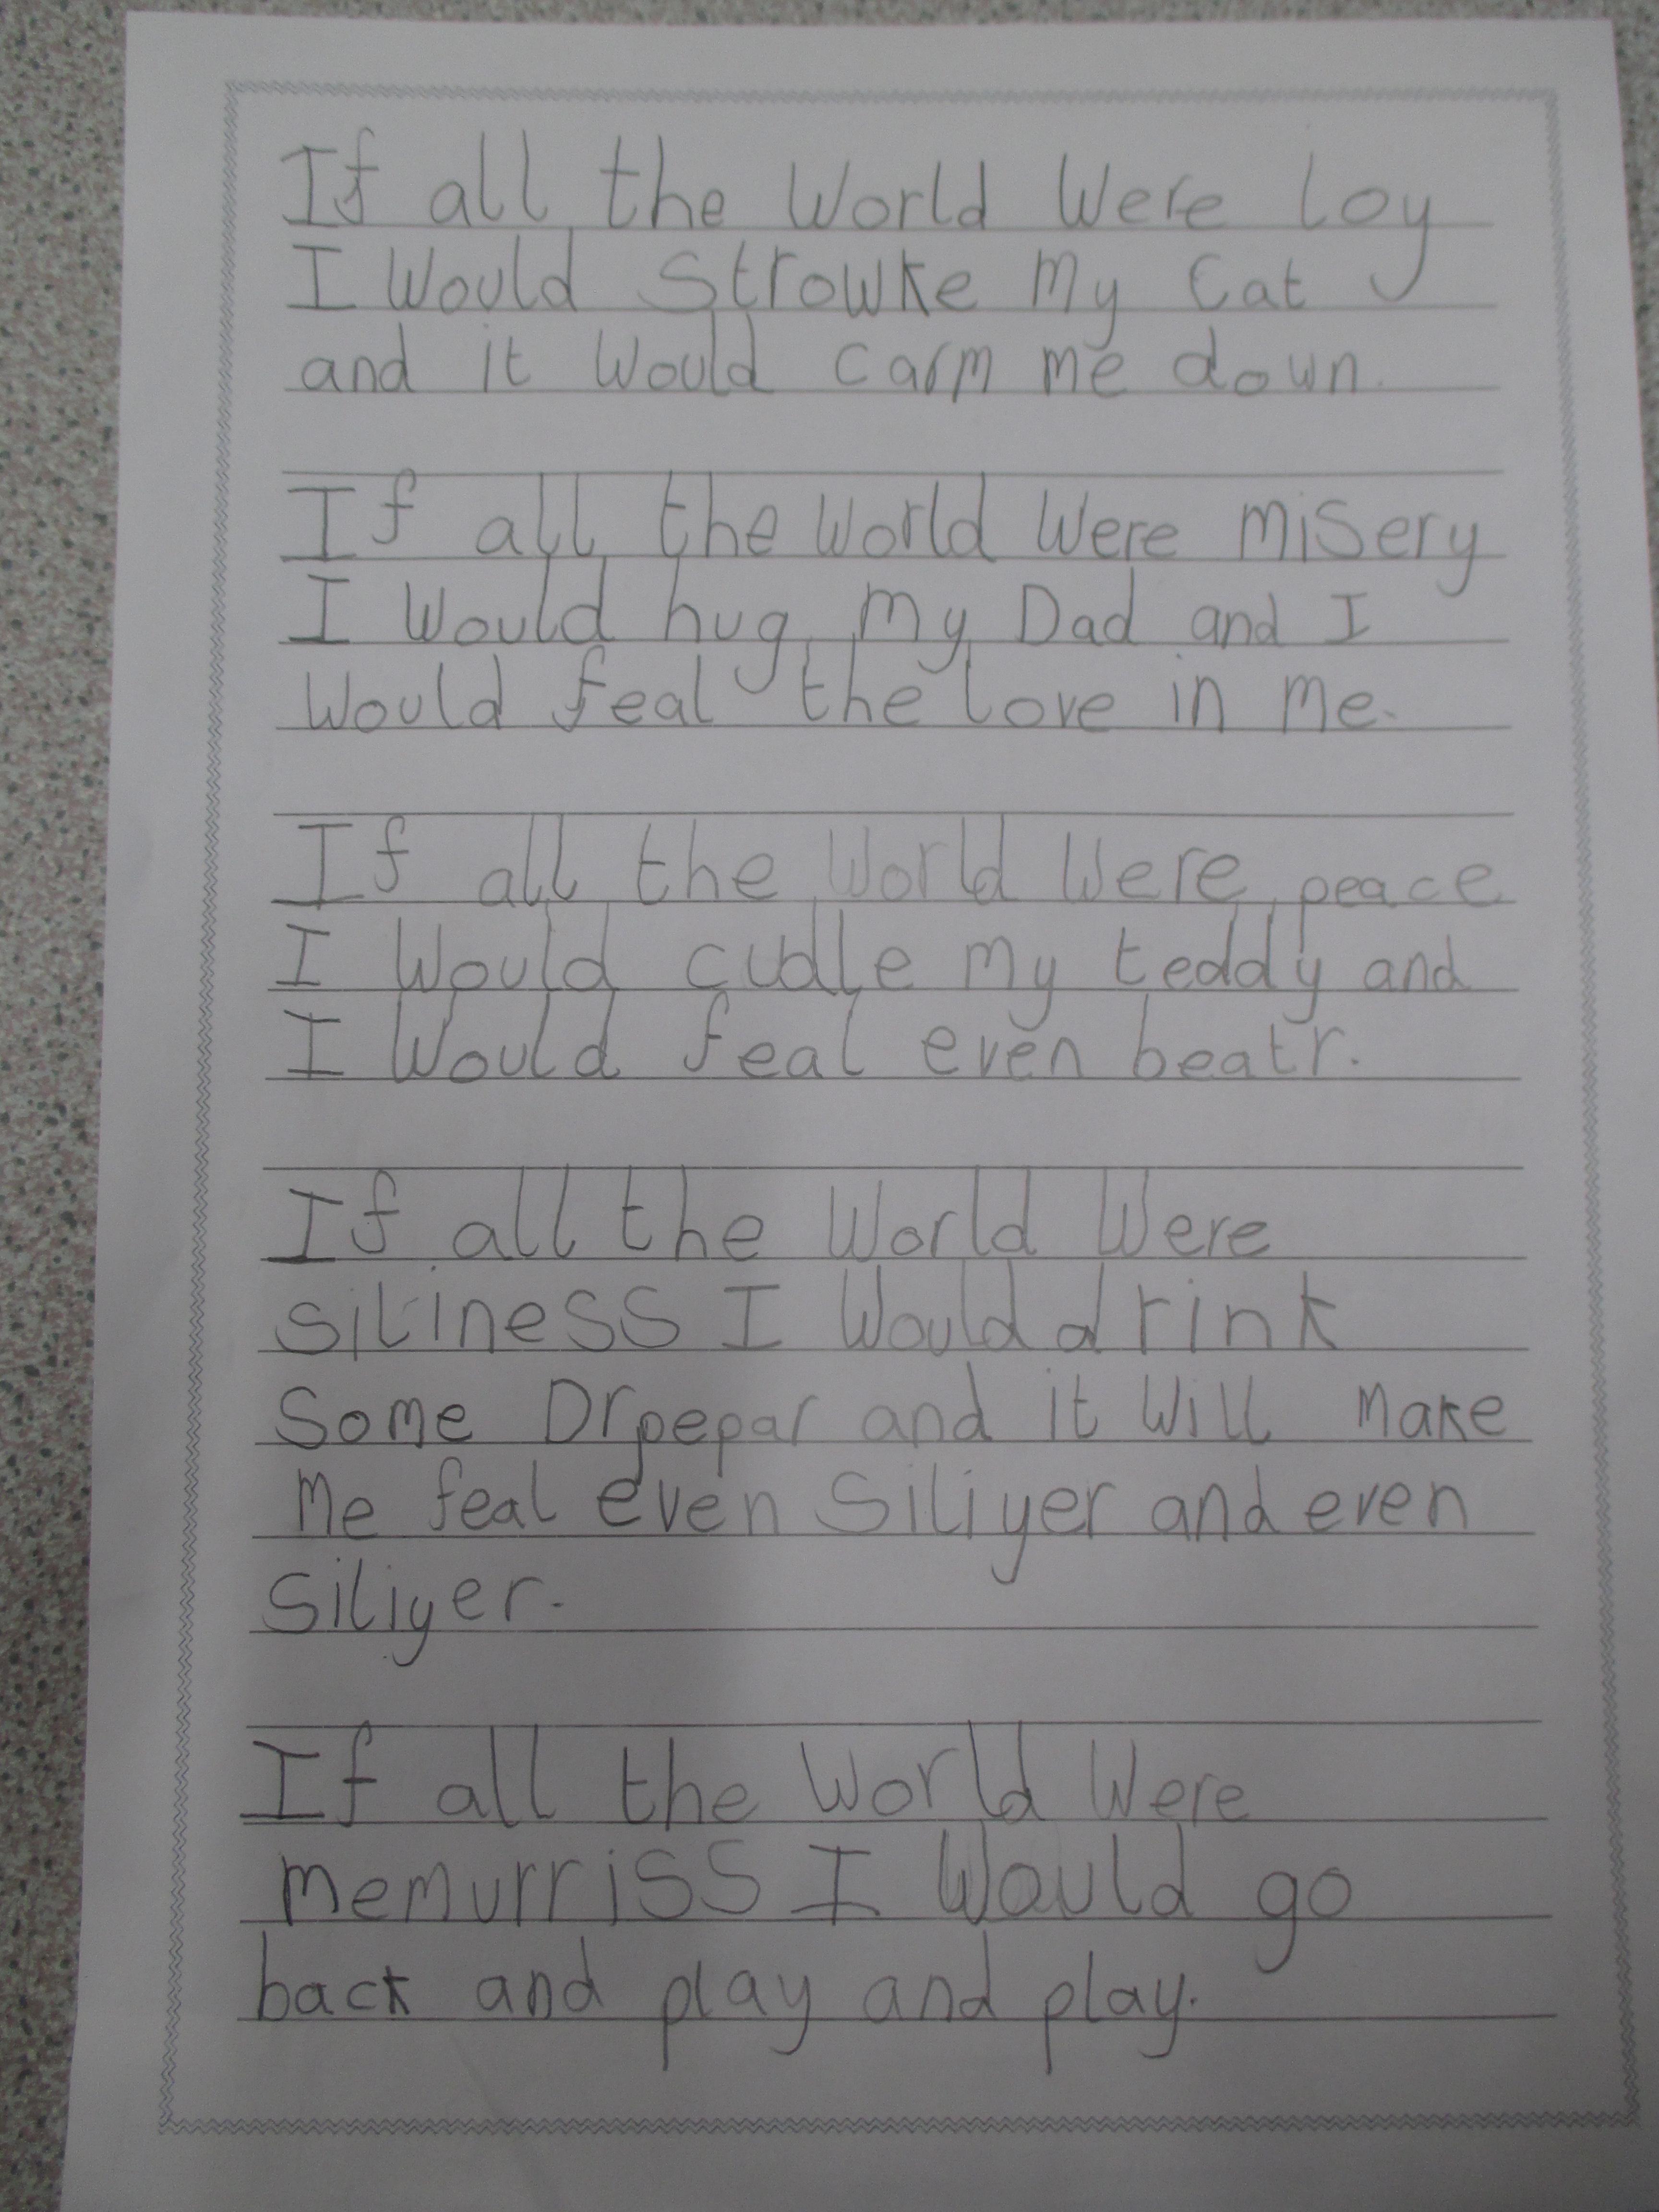 If all the World Were loy
I Would Strowke My Cat
and it Would carm me down.
If all the World Were Misery
I Would hug My Dad and I
Would feal the love in Me.
If all the World Were peace
I Would cudle My teddy and
I Would feal even beatr.
If all the World Were
siliness I Would drink
Some Drpepar and it Will Make
Me feal even Siliyer and even
Siliyer.
If all the World Were
Memurriss I Would go
back and play and play.